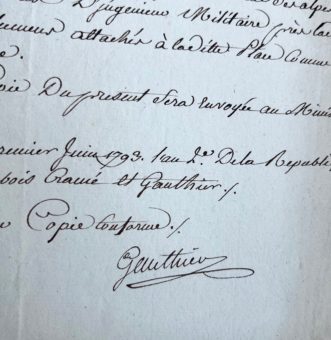 D'ingenieur Militaire près la
attachés à la ditte Place comme
Du present Sera envoyée au Minis
premier Juin 1793. l'an 2e. De la Republi
bois Crancé et Gauthier ./.
Copie Conforme ./.
Gauthier